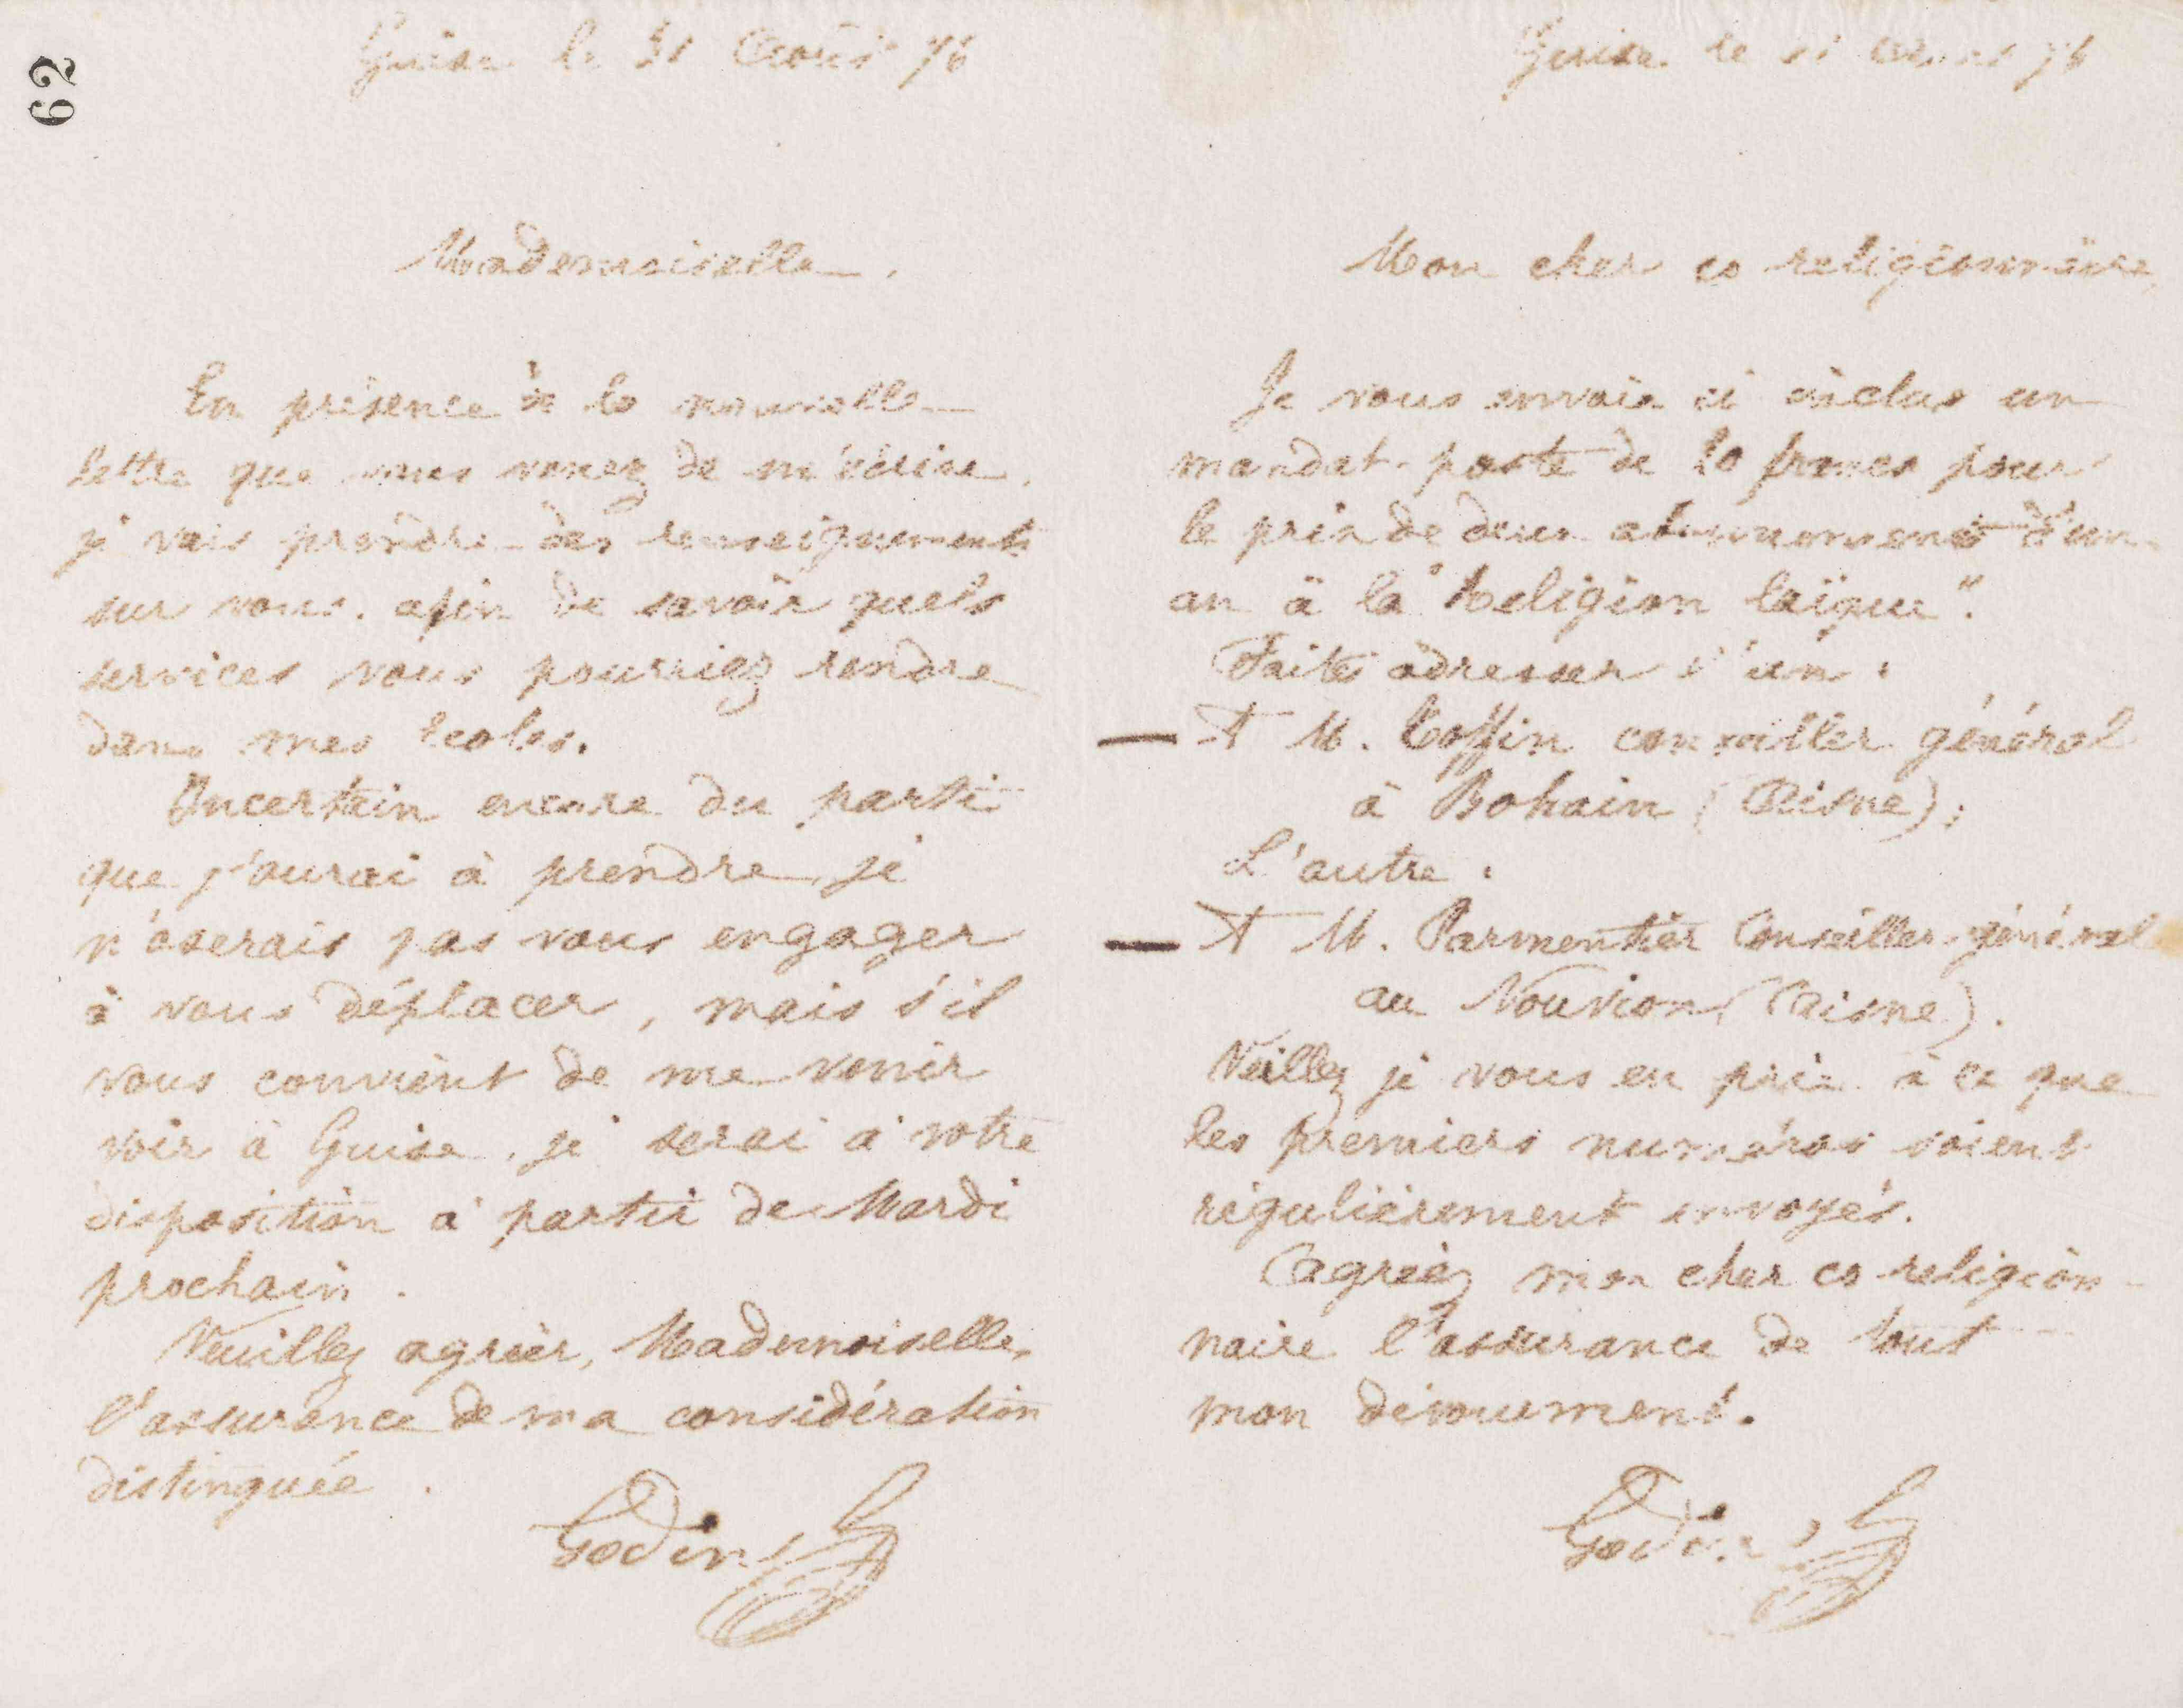 62
Guise le 31 Août 76
Mademoiselle,
En présence de la nouvelle
lettre que vous venez de m'écrire,
je vais prendre des renseignements
sur vous, afin de savoir quels
services vous pourriez rendre
dans mes écoles.
Incertain encore du parti
que j'aurai à prendre, je
n'oserais pas vous engager
à vous déplacer, mais s'il
vous convient de me venir
voir à Guise, je serai à votre
disposition à partir de Mardi
prochain.
Veuillez agréer, Mademoiselle,
l'assurance de ma considération
distinguée.
Godin
Guise le 76
Mon cher co religionnaire,
Je vous envoie ci inclus un
mandat-poste de francs pour
le prix de deux abonnements d'un
an à la "Religion laïque".
Faites adresser l'un :
— A M. Toffin conseiller général
à Bohain (Aisne);
L'autre :
— A M. Parmentier Conseiller général
au Nouvion (Aisne).
Veillez je vous en prie à ce que
les premiers numéros soient
régulièrement envoyés.
Agréez mon cher co religion-
naire l'assurance de tout
mon dévouement.
Godin